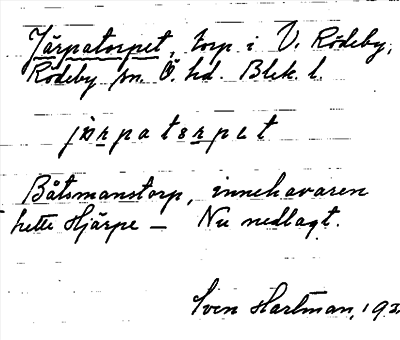 Järpatorpet, torp i V. Rödeby,
Rödeby sn. Ö. hd. Blek. l.
Båtsmanstorp, innehavaren
hette Hjärpe — Nu nedlagt.
Sven Hartman, 192